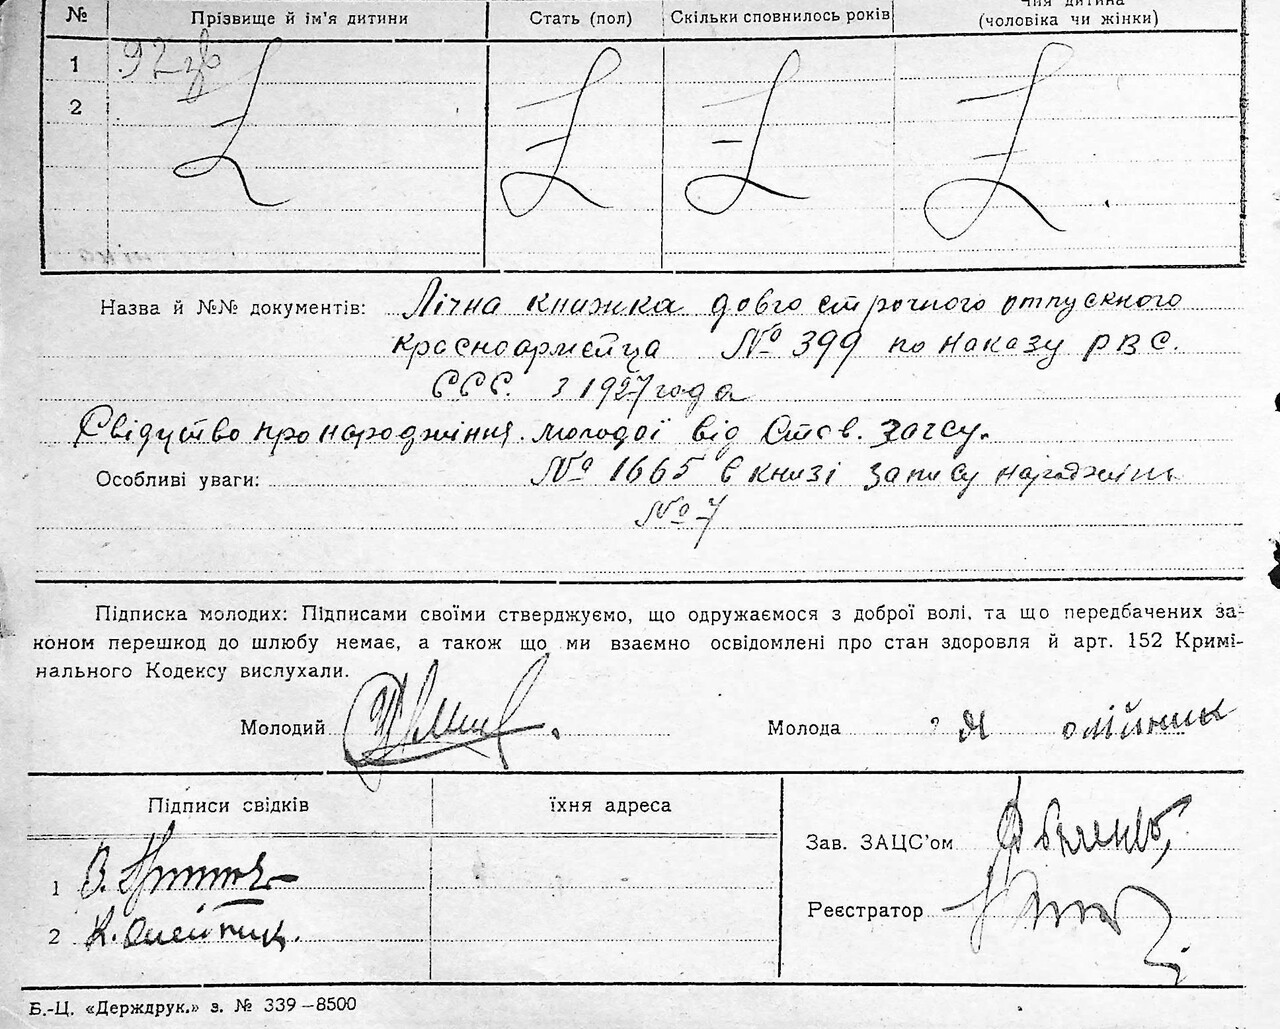 № Прізвище й ім'я дитини Стать (пол) Скільки сповнилось років Чия дитина
(чоловіка чи жінки)
1
2
Назва й №№ документів: Лічна книжка довго строчного отпускного
красноармейца № 399 по наказу РВС.
ССС. з 1927 года
Свідуство про народжіння. молодої від Став. загсу.
Особливі уваги: № 1665 в книзі запису народжінь
№ 7
Підписка молодих: Підписами своїми стверджуємо, що одружаємося з доброї волі, та що передбачених за-
коном перешкод до шлюбу немає, а також що ми взаємно освідомлені про стан здоровля й арт. 152 Кримі-
нального Кодексу вислухали.
Молодий Молода Я Олійник
Підписи свідків їхня адреса
Зав. ЗАЦС'ом
1 В.
Реєстратор
2 К. Олейник.
Б.-Ц. «Держдрук.» з. № 339–8500